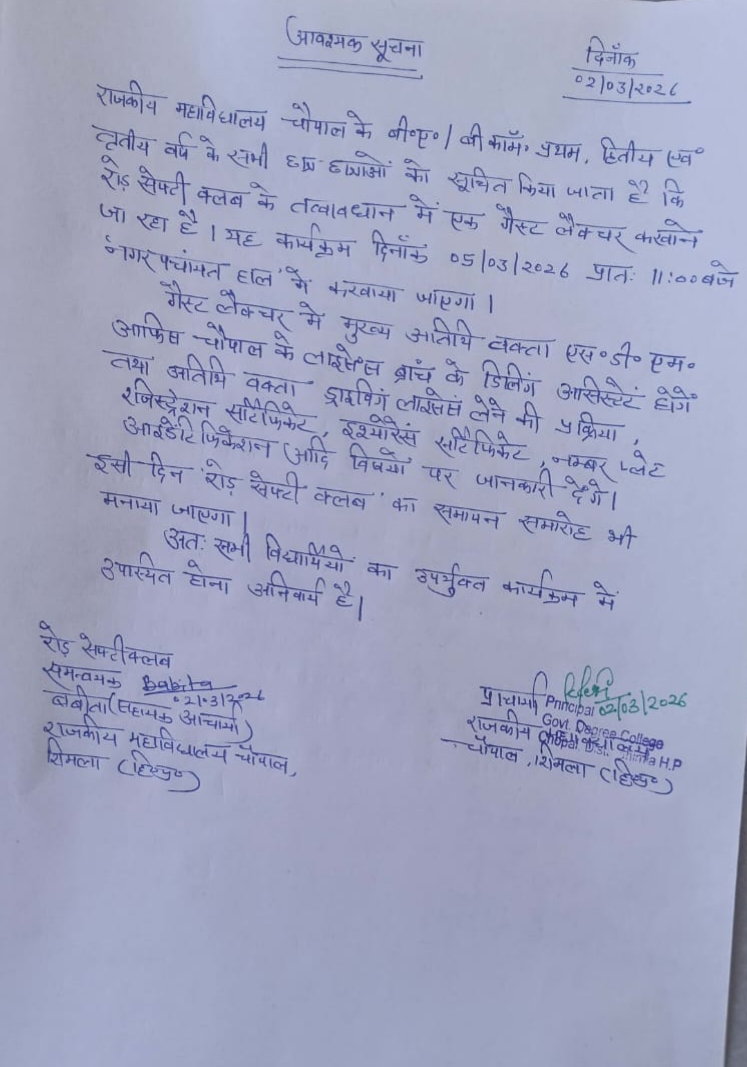 आवश्यक सूचना
दिनाँक
02/03/2026
राजकीय महाविधालय चौपाल के बी०ए०/बी कॉम. प्रथम, द्वितीय एवं
तृतीय वर्ष के सभी छात्र छात्राओं को सूचित किया जाता है कि
रोड़ सेफ्टी क्लब के तत्वावधान में एक गैस्ट लैक्चर करवाने
जा रहा है। यह कार्यक्रम दिनाँक 05/03/2026 प्रातः 11:00बजे
'नगर पचांयत हाल' में करवाया जाएगा।
गैस्ट लैक्चर में मुख्य अतिथि वक्ता एस०डी०एम०
आफिस चौपाल के लाइसेंस ब्रांच के डिलिंग असिस्टेंट होगें
तथा अतिथि वक्ता ड्राइविंग लाइसेंस लेने की प्रक्रिया,
रजिस्ट्रेशन सर्टिफिकेट, इश्योरेंस सर्टिफिकेट, नम्बर प्लेट
आइडेंटिफिकेशन आदि विषयों पर जानकारी देंगे।
इसी दिन 'रोड़ सेफ्टी क्लब' का समापन समारोह भी
मनाया जाएगा।
अतः सभी विद्यार्थियों का उपर्युक्त कार्यक्रम में
उपास्थित होना अनिवार्य है।
रोड़ सेफ्टी क्लब
समन्वयक Babita
02/03/2026
बबीता (सहायक आचार्या)
राजकीय महाविधालय चौपाल,
शिमला (हि०प्र०)
प्राचार्या Principal 02/03/2026
Govt. Degree College
राजकीय महाविधालय
Chopal Distt. Shimla H.P
चौपाल, शिमला (हि०प्र०)